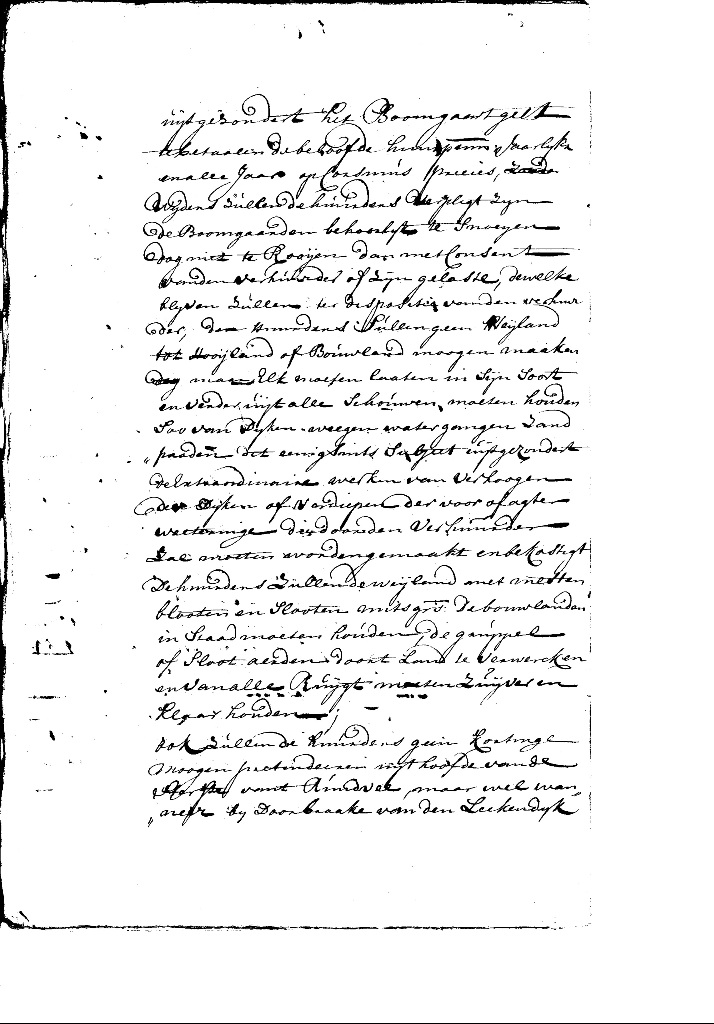 uijtgezondert het Boomgaert gelt
te betaalen de beloofde huurpenn: Jaarlijks
en alle Jaar op Consmis precies,
Wijders Zullen de huurders Verpligt Zyn
de Boomgaarden behoorlyk te Snoeyen
dog niet te Rooijen dan met Consent
van den verhuurder of Zijn gelaste, dewelke
blyven Zullen ter dispositie van den verhuur
der, den Huurders Sullen geen Weijland
tot Hooijland of Bouwland moogen maaken
dog maer Elk moeten laaten in Sijn Soort
en verder uijt alle Schouwen moeten houden
Soo van Dyken weegen watergangen Zand
„paaden dit eenigsints Subject uijtgezondert
de Extraordinaire werken van Verhoogen
der Dijken of Verdiepen der voor of agter
weeteringe die door den Verhuurder
Zal moeten worden gemaakt en bekostigt
De huurders Zullen de weijland met mesten
blooten en Slooten mitsgrs De bouwlanden
in Staad moeten houden, de gruppel
of Sloot aerden doort Land te verwercken
en van alle Ruijgt moeten Zuijver en
klaar houden;
ook Zullen de huurders geen Kortinge
moogen pretendeeren uijt hoofde van de
Sterfte vant Rindvee, maar wel wan„
„neer by Doorbraake van den Leckendyk